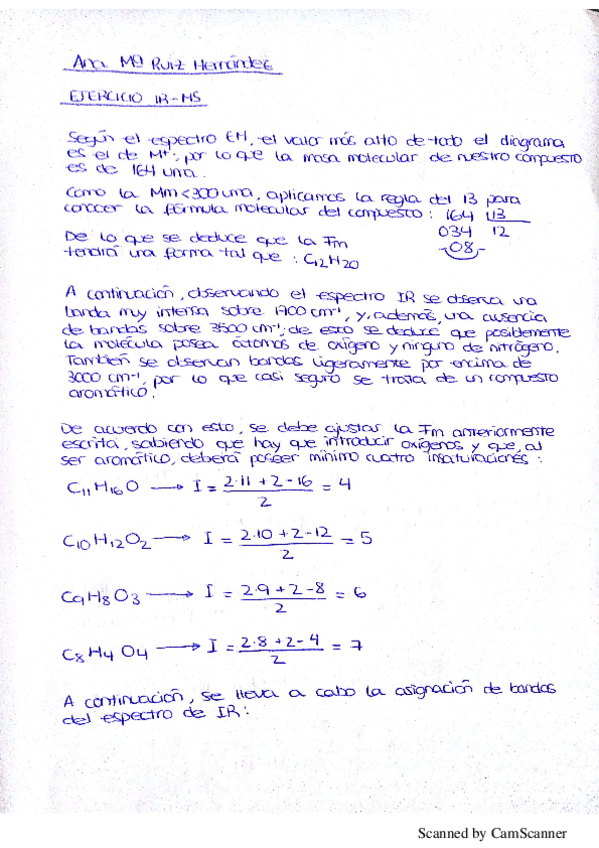 Ana Mª Ruiz Hernández
EJERCICIO IR-MS
Según el espectro EM, el valor más alto de todo el diagrama
es el de M+·, por lo que la masa molecular de nuestro compuesto
es de 164 uma.
Como la Mm < 300 uma, aplicamos la regla del 13 para
conocer la fórmula molecular del compuesto: 164 |13
034 12
-08-
De lo que se deduce que la Fm
tendrá una forma tal que: C12H20
A continuación, observando el espectro IR se observa una
banda muy intensa sobre 1700 cm⁻¹, y, además, una ausencia
de bandas sobre 3500 cm⁻¹; de esto se deduce que posiblemente
la molécula posea átomos de oxígeno y ninguno de nitrógeno.
También se observan bandas ligeramente por encima de
3000 cm⁻¹, por lo que casi seguro se trata de un compuesto
aromático.
De acuerdo con esto, se debe ajustar la Fm anteriormente
escrita, sabiendo que hay que introducir oxígenos y que, al
ser aromático, deberá poseer mínimo cuatro insaturaciones:
C11H16O → I = 2·11 + 2 - 16 / 2 = 4
C10H12O2 → I = 2·10 + 2 - 12 / 2 = 5
C9H8O3 → I = 2·9 + 2 - 8 / 2 = 6
C8H4O4 → I = 2·8 + 2 - 4 / 2 = 7
A continuación, se lleva a cabo la asignación de bandas
del espectro de IR:
Scanned by CamScanner